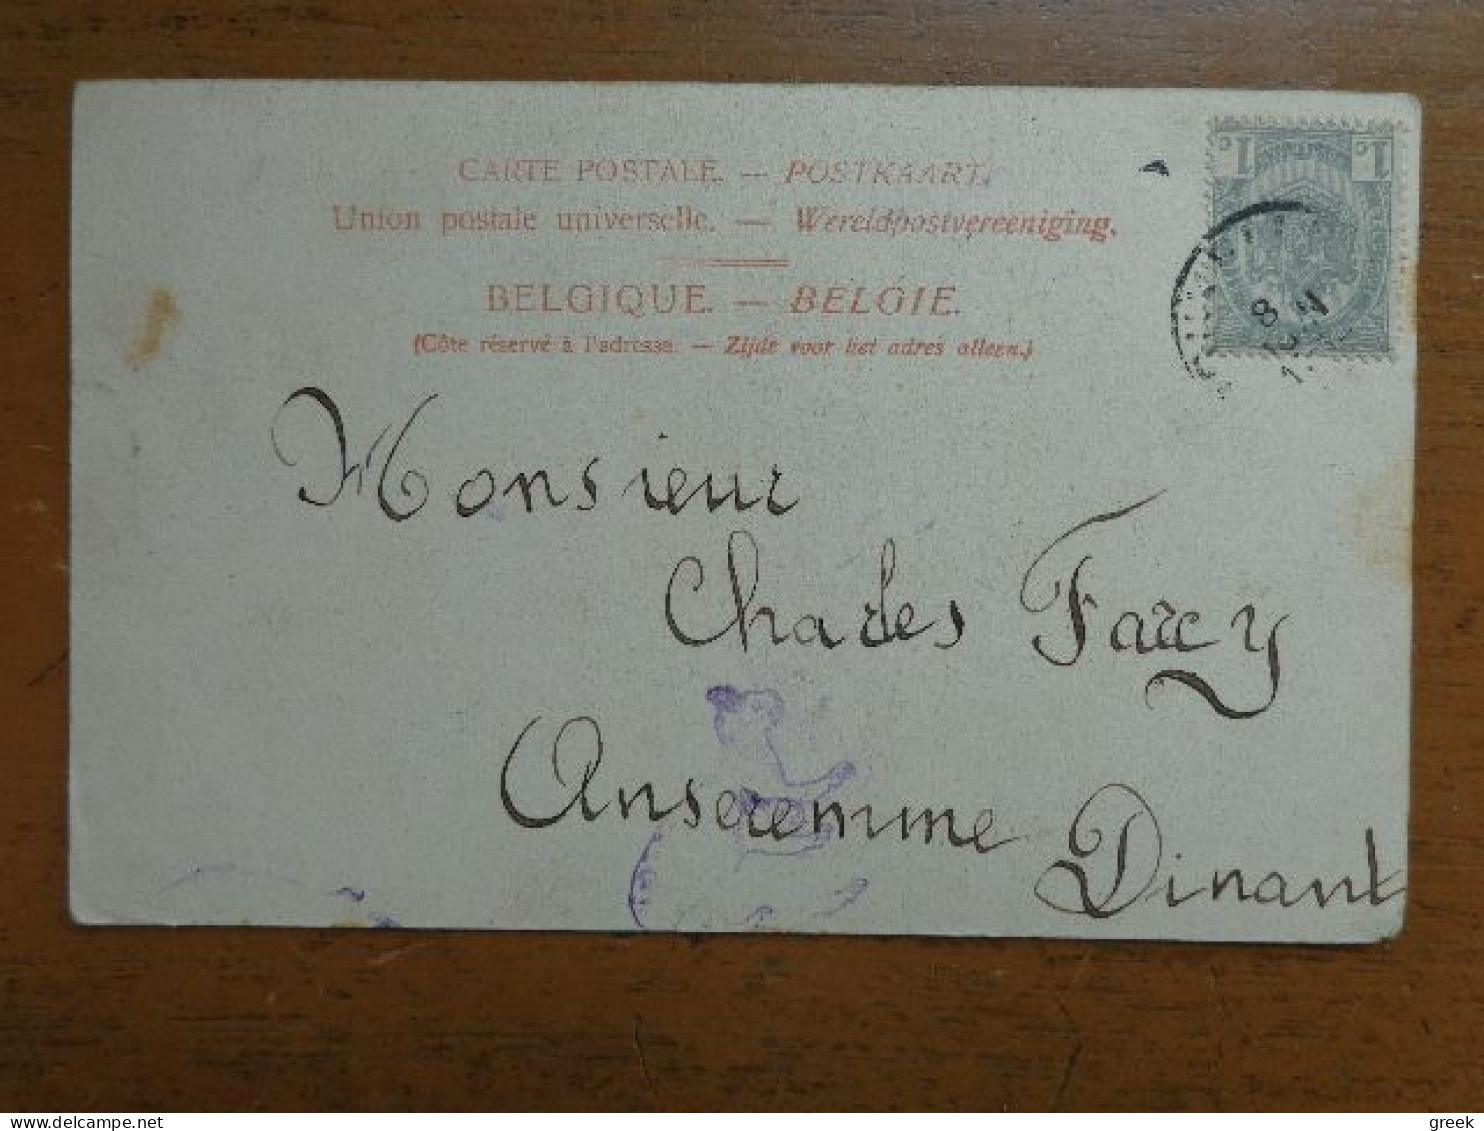 CARTE POSTALE. — POSTKAART.
Union postale universelle. — Wereldpostvereeniging.
BELGIQUE. — BELGIE.
(Côte réservé à l'adresse. — Zijde voor het adres alleen.)
1c 1c
8
Monsieur
Charles Farcy
Anseremme Dinant
greek